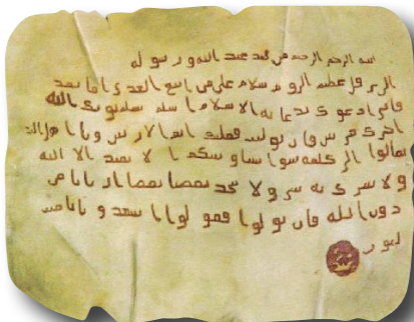 بسم الله الرحمن الرحيم من محمد عبد الله ورسوله
الى هرقل عظيم الروم سلام على من اتبع الهدى اما بعد
فاني ادعوك بدعاية الاسلام اسلم تسلم يوتك الله
اجرك مرتين فان توليت فعليك اثم الاريسين ويا اهل
تعالوا الى كلمة سوا بيننا وبينكم ا لا نعبد الا الله
ولا نشرك به شي ولا يتخذ بعضنا بعضا اربابا من
دون الله فان تولوا فقولوا اشهدوا بانا مس
لمون